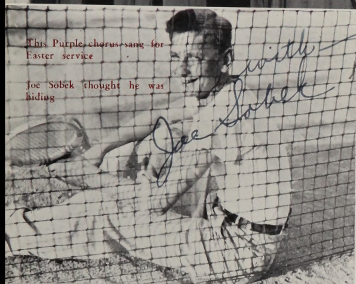 This Purple chorus sang for
Easter service
Joe Sobek thought he was
hiding
Faith-
Joe Sobek